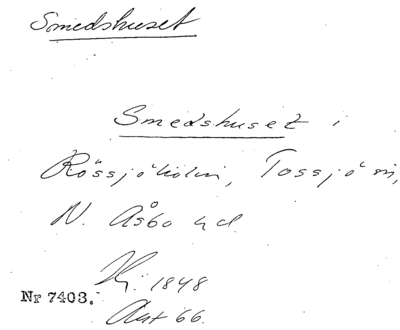 Smedshuset
Smedshuset i
Rössjöholm, Tossjö sn,
N. Åsbo hd.
Hj. 1848
Nr 7403.
Aut 66.